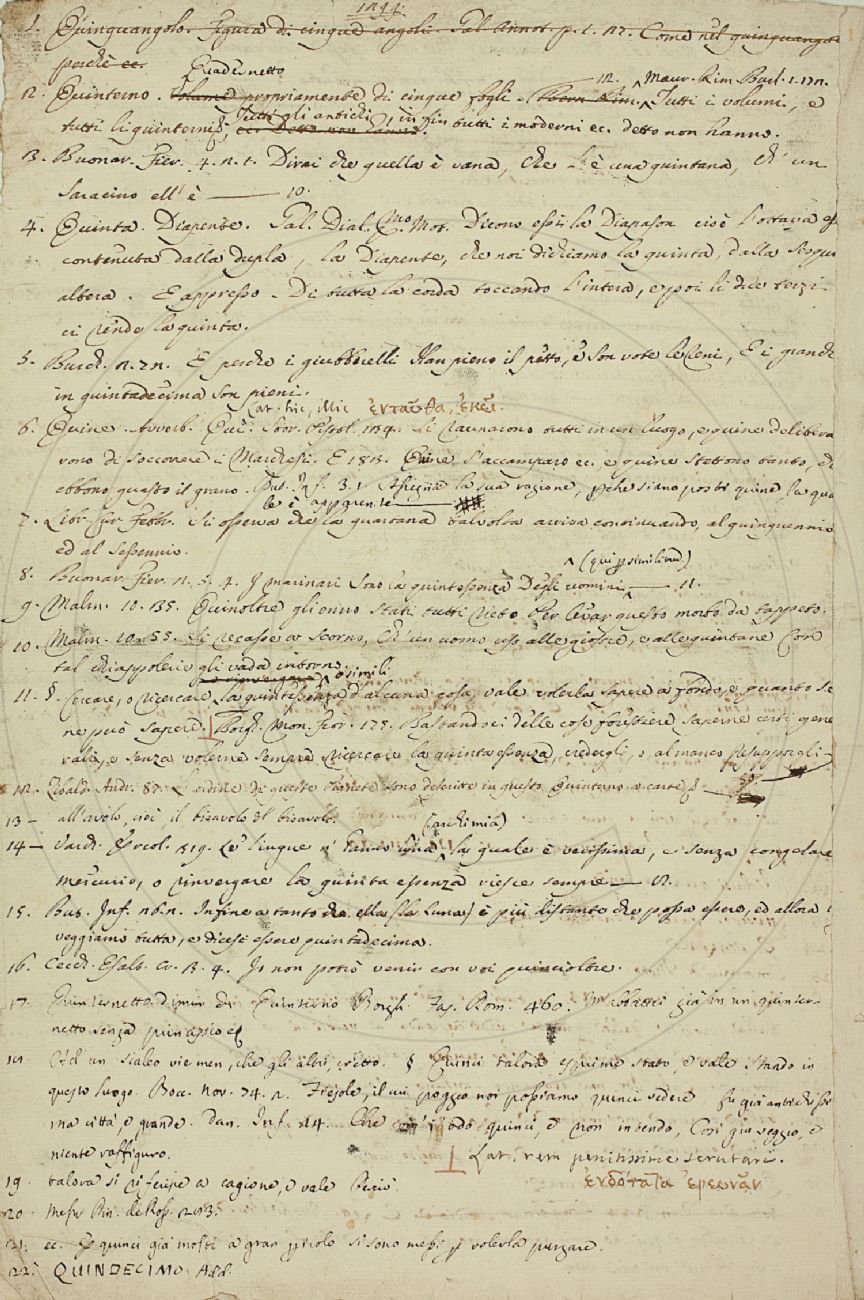 1. Quinquangolo. Figura di cinque angoli. Gal. Annot. p. 1. 27. Come nel quinquangolo
perchè ec.
Quadernetto
12. Maur. Rim. Burl. 1.
2. Quinterno. Volume propriamente di cinque fogli. Tutti i volumi, e
tutti gli antichi
tutti li quinterni, infin tutti i moderni ec. detto non hanno.
3. Buonar. Fier. 4. 2. 1. Dirai che quella è vana, che l'è una quintana, ch'un
Saracino ell'è — 10.
4. Quinta. Diapente. Gal. Dial. Mot. Dicono essi la Diapason cioè l'ottava esser
contenuta dalla dupla, la Diapente, che noi dichiamo la quinta, dalla sesqui
altera. E appresso. Di tutta la corda toccando l'intera, e poi li due terzi
ci rende la quinta.
5. Burch. 2. E perche i giubberelli Han pieno il petto, e son vote le reni, E i granchi
in quintadecima son pieni.
Lat. hic, illic ἐνταῦθα, ἐκεῖ.
6. Quine. Avverb. Qui. Stor. Pistol. 134. Si raunarono tutti in un luogo, e quine delibera
rono di soccorrere i Marchesi. E 183. Quine s'accamparo ec. e quine stettono tanto, ch'
ebbono guasto il grano. But. Inf. 3. 1. Assegna la sua ragione, perche siano posti quine la qua
le è apparente
7. Libr. cur. febbr. Si osserva che la quartana talvolta arriva continuando, al quinquennio
ed al sessennio.
(qui per similitud.)
8. Buonar. Fier. 2. 3. 4. I marinari Sono la quintessenza Degli uomini — 11.
9. Malm. 10. 35. Quinoltre gli enno stati tutti Per levar questo morbo da tappeto.
10. Malm. 10. 55. Si recasse a scorno, Ch'un uomo uso alle giostre, e alle quintane Con
tal chiappolerie gli vada intorno.
o rinvergare o simili
11. §. Cercare, o ricercare la quintessenza d'alcuna cosa, vale volerla sapere a fondo, e quanto se
ne può sapere. Borgh. Mon. Fior. 175. Bastandoci delle cose forestiere saperne certi gene
rali, e senza volerne sempre ricercare la quinta essenza, credergli, o almanco presupporgli
12. Zibald. Andr. 87. L'ordine di queste Pianete sono descritte in questo Quinterno a carte 50
13 — all'avolo, cioè il bisavolo del bisavolo.
(archimia)
14 — Varch. Ercol. 319. Le lingue n'hanno una, la quale è verissima, e senza congelare
mercurio, o rinvergare la quinta essenza riesce sempre
15. But. Inf. 20. 2. Infine a tanto che ella (la Luna) è più distante che possa essere, ed allora
veggiamo tutta, e dicesi essere quintadecima.
16. Cecch. Esalt. Cr. 3. 4. Io non potrò venir con voi quincioltre.
17. Quinternetto dimin. di Quinterno Borgh. Fas. Rom. 460. M'abbattei già in un quinter-
netto senza principio ec
18. Ch'a un sialeo vie men, che gli altri, eretto. § Quinci talora esprime stato, e vale Stando in
questo luogo. Bocc. nov. 74. 2. Fiesole, il cui poggio noi possiamo quinci vedere fu già antichissi
ma città, e grande. Dan. Inf. 24. Che com'i' odo quinci, e non intendo, Così giù veggio, e
niente raffiguro. Lat. rem penitissime scrutari.
19. talora si riferisce a cagione, e vale Perciò. ἐνδότατα ἐρευνᾶν
20. Mess. Cin.
21. ec. E quinci già molti a gran pericolo si sono messi per volerla purgare.
22. QUINDECIMO Add.